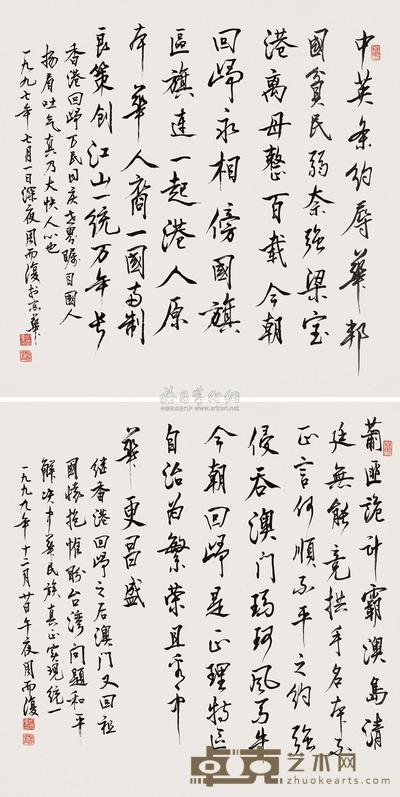 中英条约辱华邦
國貧民弱奈強梁宝
港离母整百载今朝
回归永相傍國旗
區旗连一起港人原
本華人裔一國两制
良策创江山一统万年长
香港回归万民同庆世界瞩目國人
扬眉吐气真乃大快人心也
一九九七年七月一日深夜周而復于京华
葡匪诡计霸澳岛清
廷無能竟拱手名本不
正言何顺不平之约强
侵吞澳门玛珂风马牛
今朝回归是正理特區
自治为繁荣且看中
华更昌盛
继香港回归之后澳门又回祖
國怀抱惟盼台湾问题和平
解决中華民族真正实现统一
一九九九年十二月廿日午夜周而復
卓克艺术网
www.zhuokearts.com